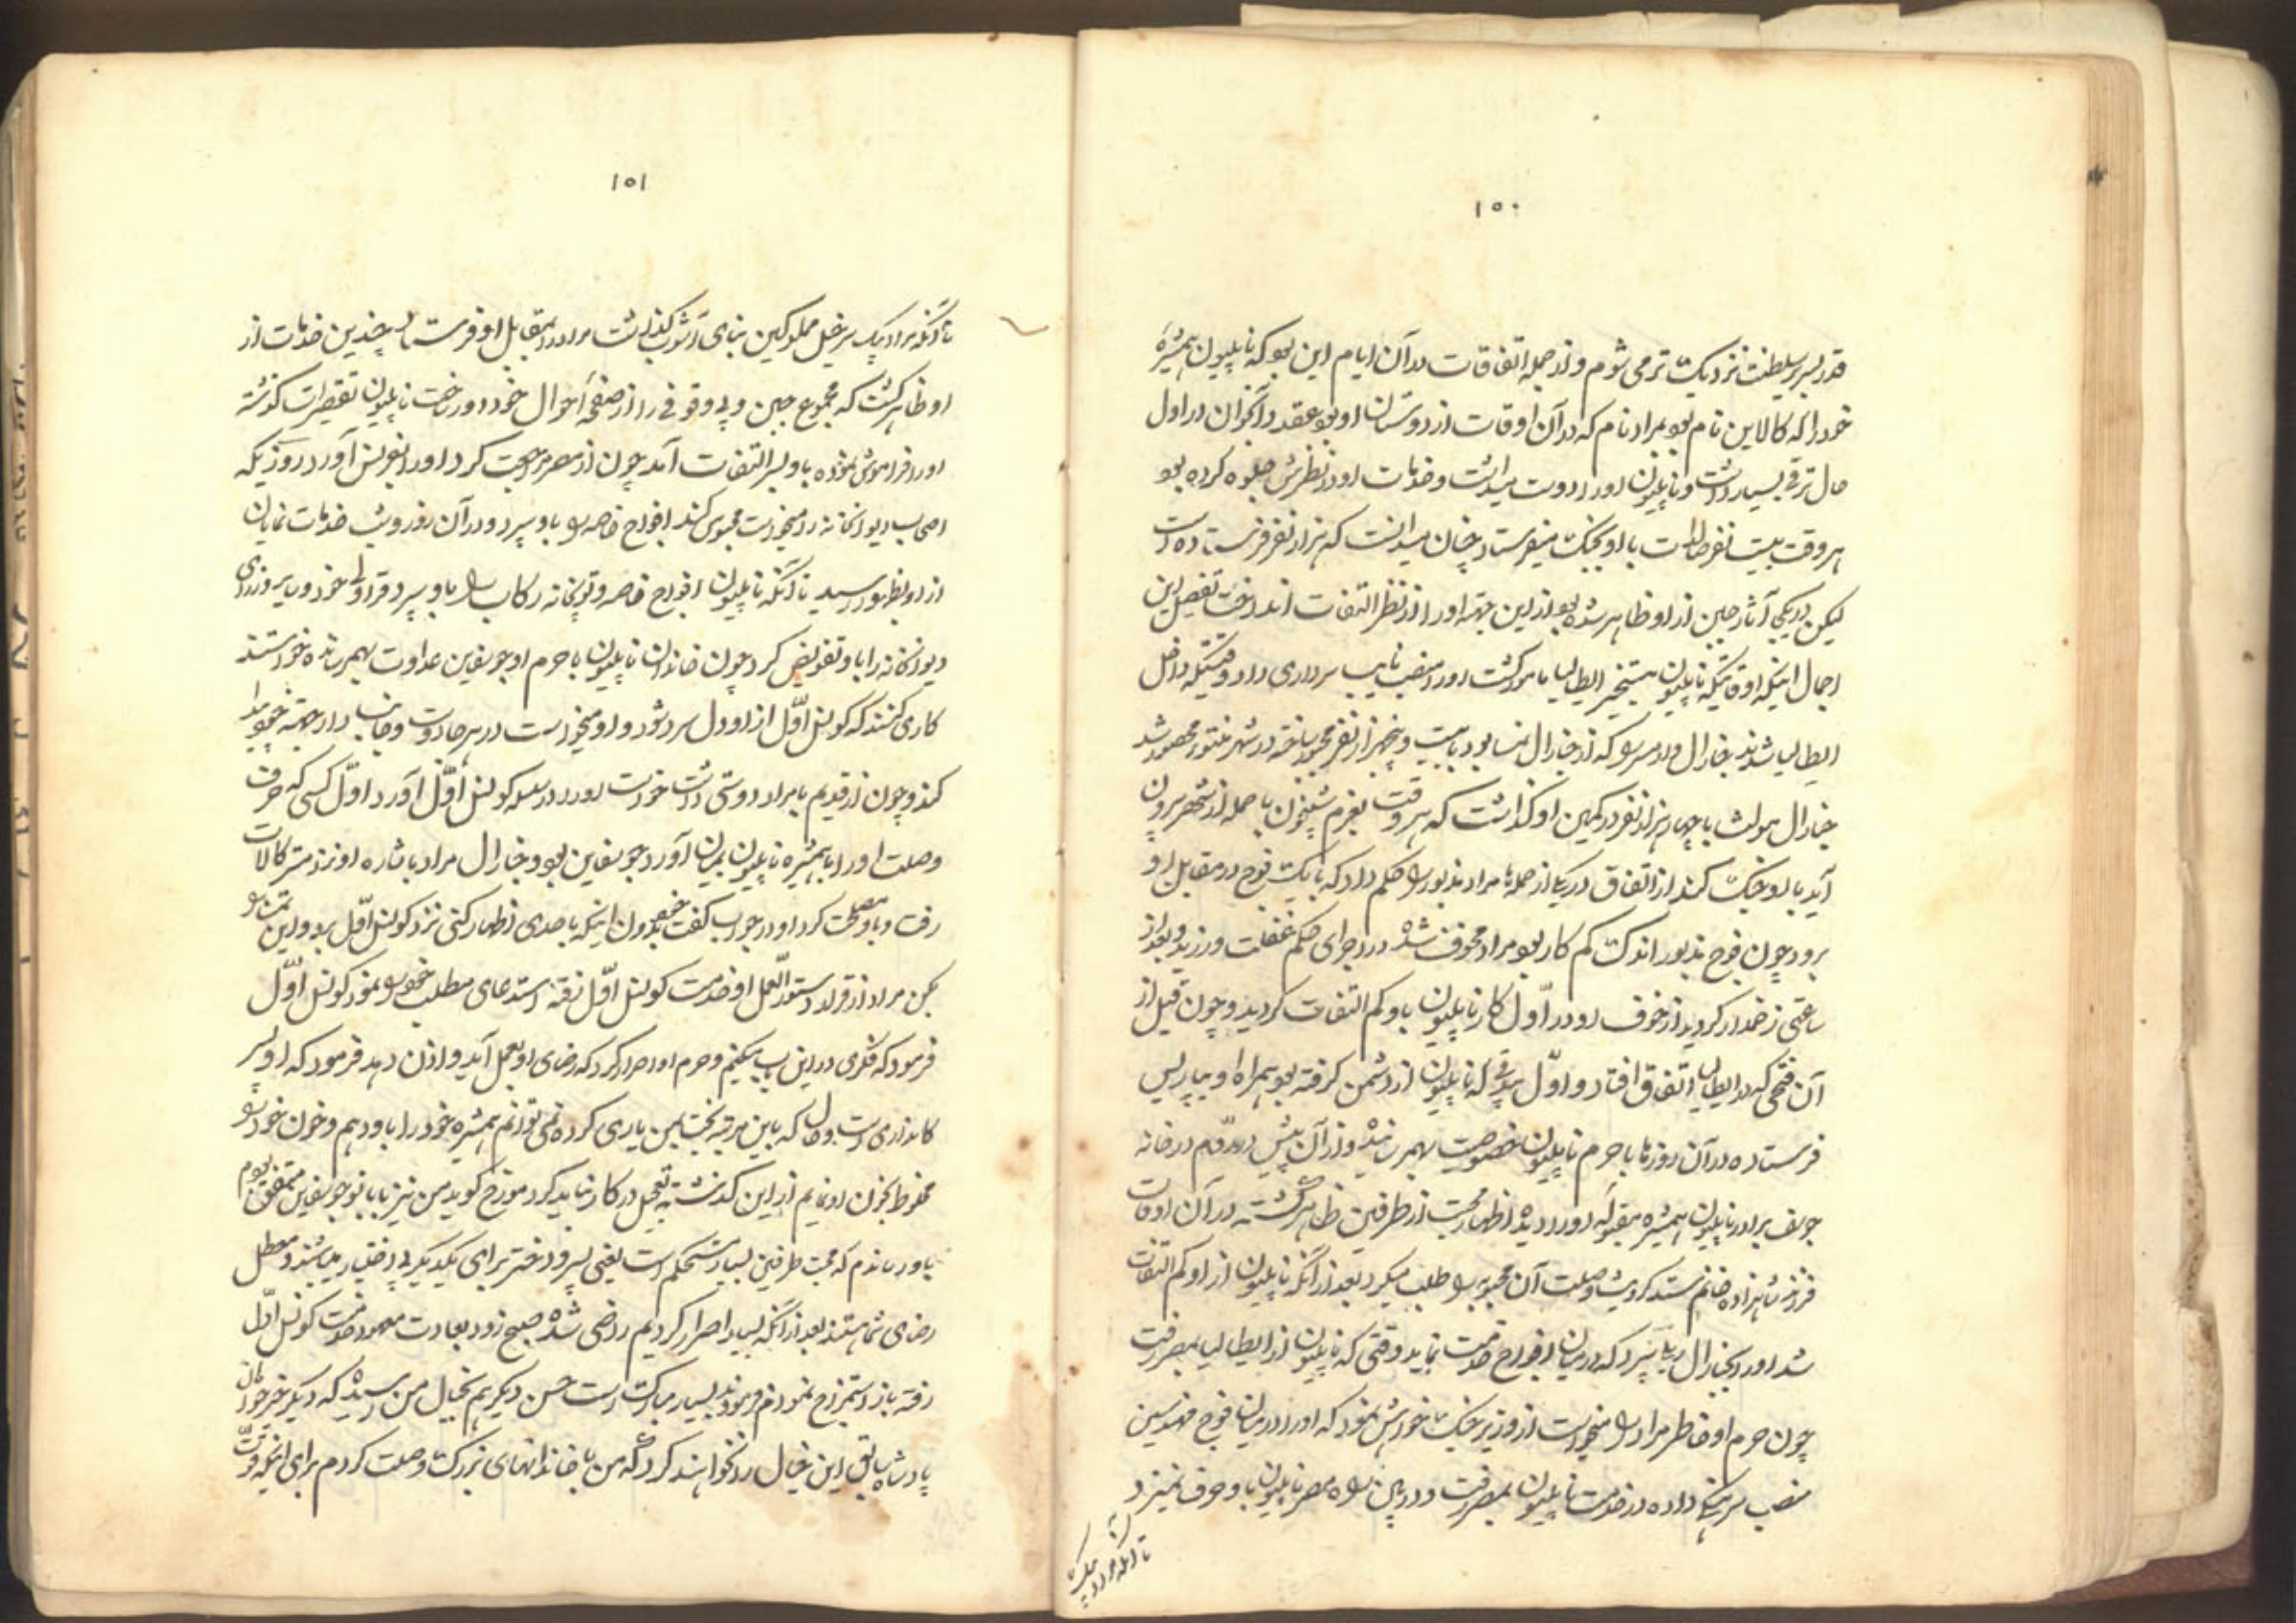 ۱۵۰
قدر بسریر سلطنت نزدیک تر می شوم و از جمله اتفاقات در آن ایام این بود که ناپلیون همشیره
خود را که کالاین نام بود بمراد نام که در آن اوقات از دوستان او بود عقد و آنجوان در اول
حال ترقی بسیار داشت و ناپلیون او را دوست میداشت و خدمات او در نظرش جلوه کرده بود
هر وقت بیست نفر صالدات با او بجنگ میفرستاد چنان میدانست که هزار نفر فرستاده است
لیکن در یکی آثار جبن از او ظاهر شده بود از این جهة او را از نظر التفات انداخت تفصیل این
اجمال اینکه اوقاتیکه ناپلیون بتسخیر ایطالیا مامور گشت او را منصب نایب سرداری داد وقتیکه داخل
ایطالیا شدند جنارال ورمسر را که از جنارال نمسا بود با بیست و پنجهزار نفر مجبور ساخته در شهر منتور محصور شد
جنارال مولث با چهار هزار نفر در کمین او گذاشت که هر وقت بعزم شبیخون یا حمله از شهر بیرون
آید با او جنگ کند از اتفاق در یکی از حمله ها مراد مذبور را حکم داد که با یک فوج در مقابل او
برود چون فوج مذبور اندک کم کار بود مراد مخوف شده در اجرای حکم غفلت ورزید و بعد از
ساعتی زخمدار گردید از خوف رو در اول کار ناپلیون باو کم التفات گردید و چون قبل از
آن فتحی که در ایطالیا اتفاق افتاد و اول بیدقی که ناپلیون از دشمن گرفته بود بهمراه او بپاریس
فرستاده در آن روزها با حرم ناپلیون خصوصیت بهمرسانید و از آن پیش در روم در خانه
جوسف برادر ناپلیون همشیره مقبوله او را دیده اظهار محبت از طرفین ظاهر گشته در آن اوقات
فرزند شاهزاده خانم سند کردیشا وصلت آن محبوبه را طلب میکرد بعد از آنکه ناپلیون از او کم التفات
شد او را بجنارال ریا سپرد که در میان افواج خدمت نماید وقتی که ناپلیون از ایطالیا بمصر رفت
چون حرم او خاطر مراد را میخواست از وزیر جنگ خواهش نمود که او را در میان فوج مهندسین
منصب سرهنگی داده در خدمت ناپلیون بمصر رفت و در بین راه مصر ناپلیون باو حرف نمیزد
تا آنکه مراد بیک
۱۵۱
تا آنکه مراد بیک سر خیل مملوکین بنای آشوب گذاشت مراد را بمقابل او فرستاد چندین خدمات از
او ظاهر گشت که مجموع جبن و بی وقوفی را از صفحه احوال خود دور ساخت ناپلیون تقصیرات گذشته
او را فراموش نموده باو بسر التفات آمد چون از مصر مراجعت کرد او را بفرانس آورد روزیکه
اصحاب دیوانخانه را میخواست محبوس کند افواج خاصه را باو سپرد و در آن روز و شب خدمات نمایان
از او بظهور رسید تا آنکه ناپلیون افواج خاصه و توپخانه رکاب را باو سپرد قراولی خود و یا سر وزرای
دیوانخانه را باو تفویض کرد چون خاندان ناپلیون با حرم او جوسفاین عداوت بهمرسانده خواستند
کاری کنند که کونسل اول از او دل سرد شود و او میخواست در هر جا دوست و جانب دار جهة خود پیدا
کند و چون از قدیم با مراد دوستی داشت خواست او را در سلسله کونسل اول آورد اول کسی که حرف
وصلت او را با همشیره ناپلیون بمیان آورد جوسفاین بود و جنارال مراد باشاره او نزد مستر کالات
رفت و با او مصلحت کرد او در جواب گفت خود بدون اینکه باحدی اظهار کنی نزد کونسل اول برو و این تمنا را
بکن مراد از قرار دستورالعمل او خدمت کونسل اول رفته استدعای مطلب خود را نمود کونسل اول
فرمود که فکری در این باب میکنیم و حرم او اصرار کرد که رضای او بعمل آید و اذن دهد فرمود که او پسر
کاندارای است و حال که باین مرتبه بخت بمن یاری کرده نمی توانم همشیره خود را باو دهم و خون خود را
مخلوط بخون او نمایم از این گذشته تعجیل در کار نباید کرد مورخ گوید من نیز با بانو جوسفاین متفق بودم
باو رساندم که محبت طرفین بسیار مستحکم است یعنی پسر و دختر برای یکدیگر بی اختیار میباشند و معطل
رضای شما هستند بعد از آنکه بسیار اصرار کردیم راضی شده صبح زود بعادت معهود خدمت کونسل اول
رفته باز استمزاج نمودم فرمودند بسیار مبارک است حسن دیگر هم بخیال من رسیده که دیگر خیرخواهان
پادشاه سابق این خیال را نخواهند کرد که من با خاندانهای بزرگ وصلت کردم برای اینکه قوت